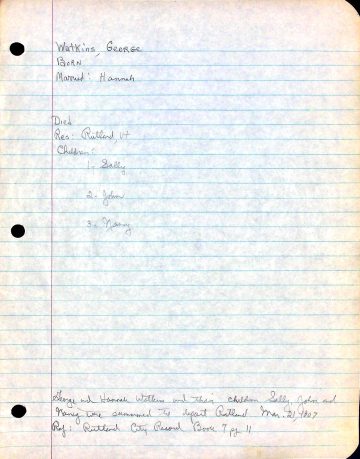 Watkins, George
Born
Married: Hannah
Died
Res: Rutland, Vt
Children:
1- Sally
2- John
3- Nancy
George and Hannah Watkins and their children Sally, John and
Nancy were summoned to depart Rutland Mar. 21, 1807
Ref: Rutland City Record Book 7 pg 11